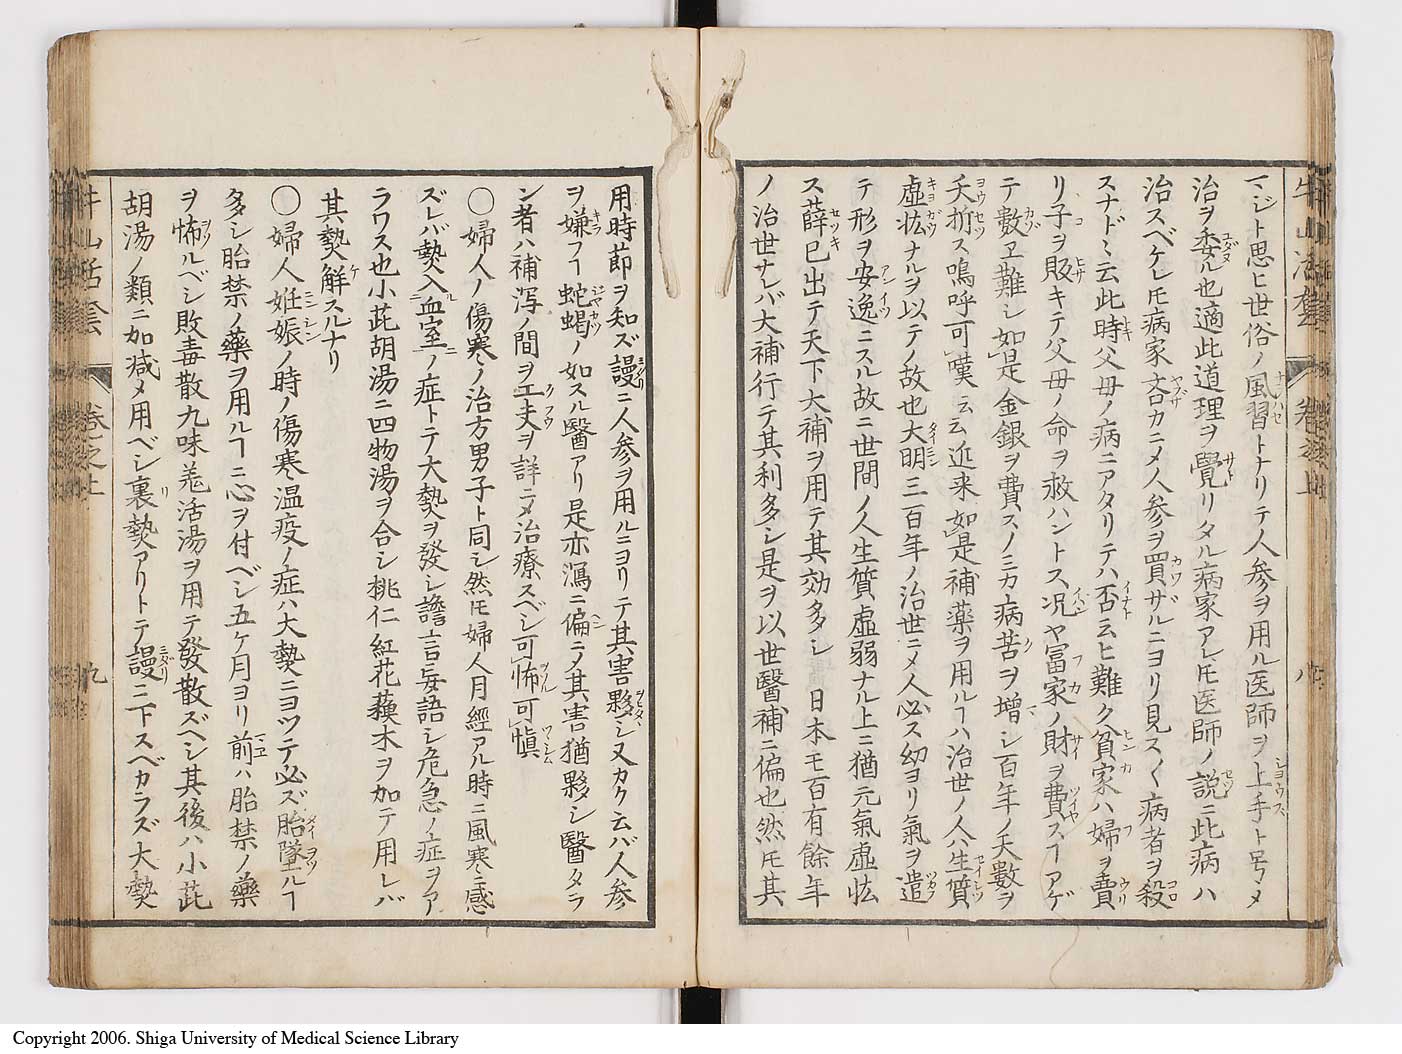 マジト思ヒ世俗ノ風習トナリテ人参ヲ用ル医師ヲ上手ト号メ
治ヲ委ル也適此道理ヲ覺リタル病家アレ𪜈医師ノ説ニ此病ハ
治スベケレ𪜈病家吝カニメ人参ヲ買ザルニヨリ見ス〱病者ヲ殺
スナド丶云此時父母ノ病ニアタリテハ否云ヒ難ク貧家ハ婦ヲ賣
リ子ヲ販キテ父母ノ命ヲ救ハントス况ヤ冨家ノ財ヲ費スヿアゲ
テ數ヱ難シ如是金銀ヲ費スノミカ病苦ヲ增シ百年ノ天數ヲ
夭折ス嗚呼可嘆云云近来如是補薬ヲ用ルヿハ治世ノ人ハ生質
虚怯ナルヲ以テノ故也大明三百年ノ治世ニメ人必ス幼ヨリ氣ヲ遣
テ形ヲ安逸ニスル故ニ世間ノ人生質虚弱ナル上ニ猶元氣虚怯
ス薛已出テ天下大補ヲ用テ其効多シ 日本モ百有餘年
ノ治世ナレバ大補行テ其利多シ是ヲ以世醫補ニ偏也然𪜈其
用時莭ヲ知ズ謾ニ人参ヲ用ルニヨリテ其害夥シ又カク云バ人参
ヲ嫌フヿ蛇蝎ノ如スル醫アリ是亦瀉ニ偏ニメ其害猶夥シ醫タラ
ン者ハ補瀉ノ間ヲ工夫ヲ詳ニメ治療スベシ可怖可愼
〇婦人ノ傷寒ノ治方男子ト同シ然𪜈婦人月經アル時ニ風寒ニ感
ズレバ𤍠入血室ノ症トテ大𤍠ヲ發シ譫言妄語シ危急ノ症ヲア
ラワス也小茈胡湯ニ四物湯ヲ合シ桃仁紅花蘓木ヲ加テ用レバ
其𤍠解スルナリ
〇婦人姙娠ノ時ノ傷寒温疫ノ症ハ大𤍠ニヨツテ必ズ胎墜ルヿ
多シ胎禁ノ藥ヲ用ルヿニ心ヲ付ベシ五ケ月ヨリ前ハ胎禁ノ藥
ヲ怖ルベシ敗毒散九味羗活湯ヲ用テ發散ズベシ其後ハ小茈
胡湯ノ類ニ加减メ用ベシ裏𤍠アリトテ謾ニ下スベカラズ大𤍠
牛山活套
卷之上
九